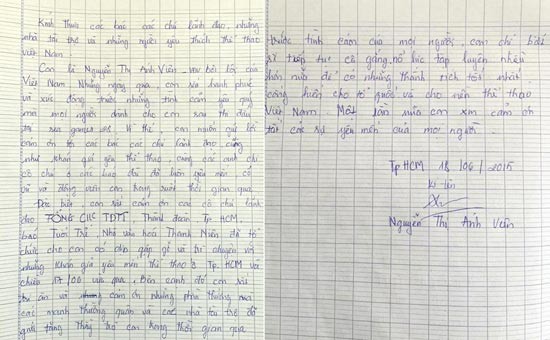 Kính Thưa các bác các chú lãnh đạo, những
nhà tài trợ và những người yêu thích thể thao
Việt Nam.
Con là Nguyễn Thị Ánh Viên, vận động viên bơi lội của
Việt Nam. Những ngày qua, con rất hạnh phúc
và xúc động trước những tình cảm yêu quý
mà mọi người dành cho con sau thi đấu
tại sea games 28. Vì thế, con muốn gửi lời
cảm ơn tới các bác các chú lãnh đạo cũng
như khán giả yêu thể thao, cùng các anh chị
cô chú ở các báo đài đã luôn yêu mến cổ
vũ và động viên con trong suốt thời gian qua.
Đặc biệt con rất cảm ơn các cô chú lãnh
đạo TỔNG CỤC TDTT, Thành đoàn Tp HCM,
báo Tuổi Trẻ, Nhà văn hoá Thanh Niên đã tổ
chức cho con có dịp gặp gỡ và trò chuyện với
những khán giả yêu mến thể thao ở Tp. HCM vào
chiều 17/06 vừa qua. Bên cạnh đó con rất
tri ân và cảm ơn những phần thưởng mà
các mạnh thường quân và các nhà tài trợ đã
gửi tặng thầy trò con trong thời gian qua.
trước tình cảm của mọi người, con chỉ biết
sẽ tiếp tục cố gắng, nổ lực tập luyện nhiều
hơn nữa để có những thành tích tốt nhất
cống hiến cho tổ quốc và cho nền thể thao
Việt Nam. Một lần nữa con xin cảm ơn
tất cả sự yêu mến của mọi người.
Tp HCM 18/06/2015
Kí tên
Nguyễn Thị Ánh Viên